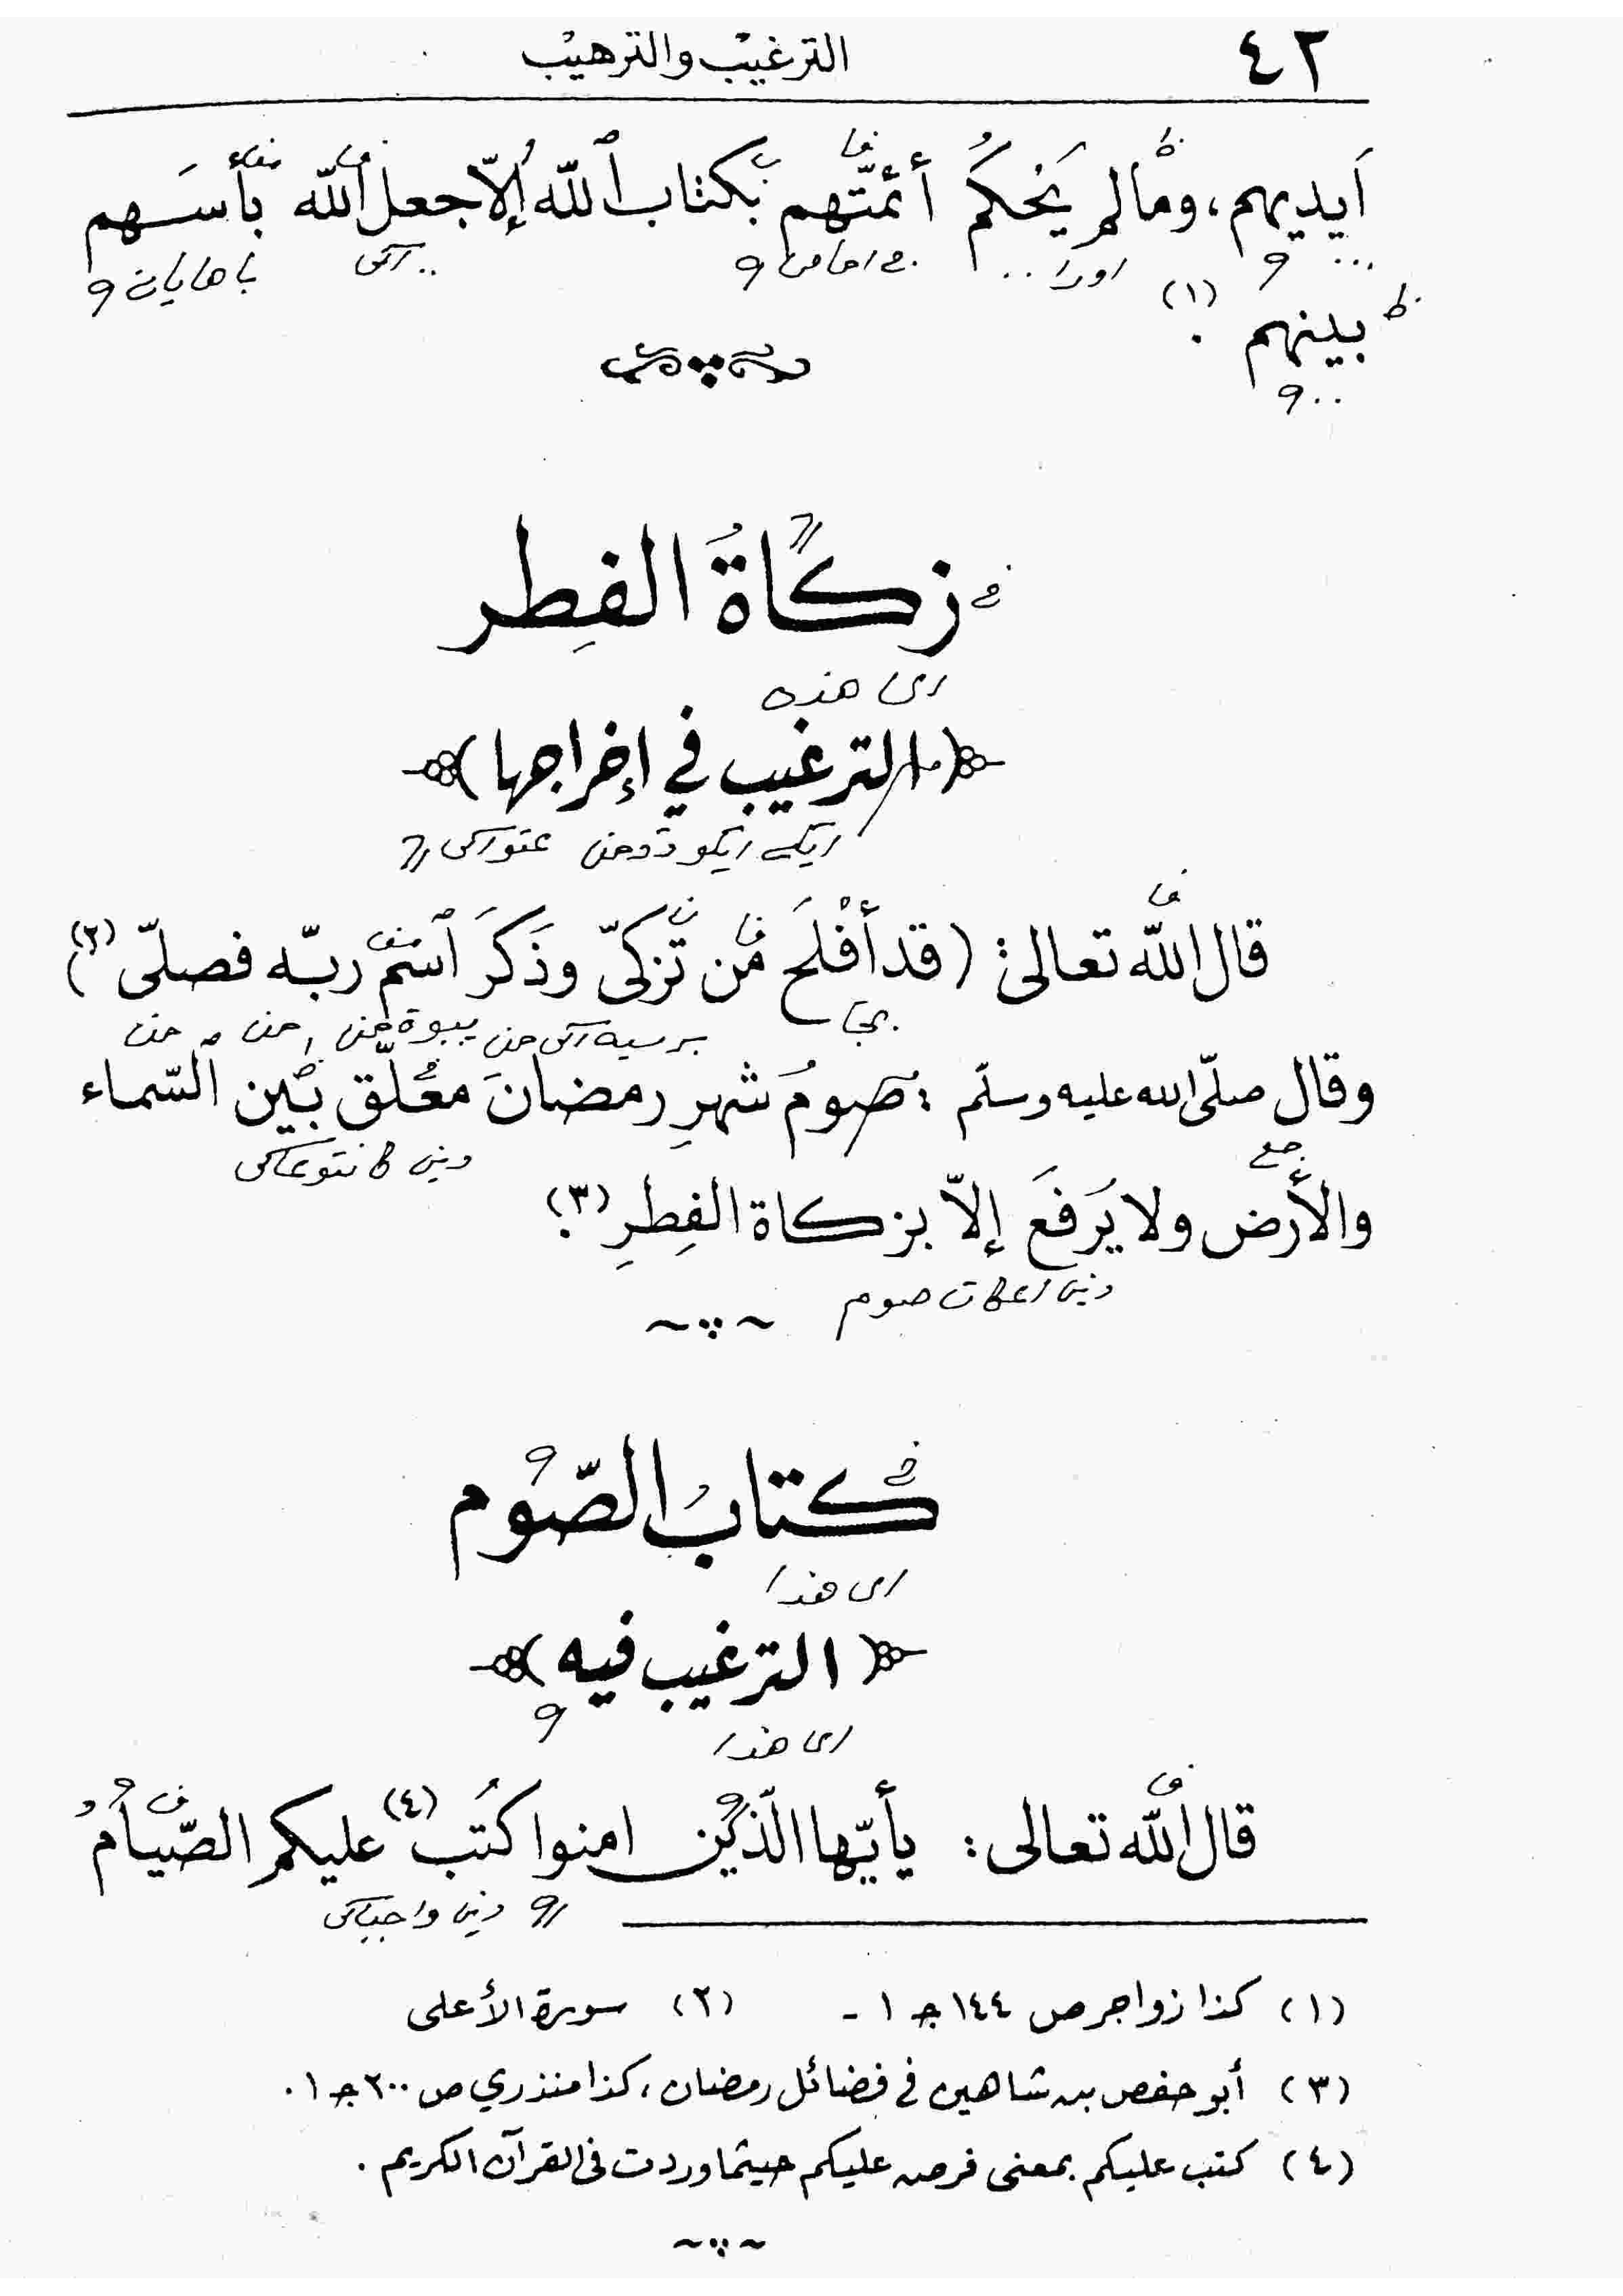 ٤٢
الترغيب والترهيب
أيديهم، وما لم يَحْكُمْ أئمّتهم بكتاب ٱللّه إلاّ جعل ٱللّه بأسَهم
بينهم (١).
زكاةُ الفِطر
اى هذه
(الترغيب في إخراجها)
قال اللّه تعالى: (قد أفْلَحَ مَن تَزكىّ وذَكَرَ ٱسم ربّه فصلىّ (٢))
وقال صلّى الله عليه وسلّم : صومُ شهرِ رمضانَ معُلّق بَين ٱلسّماء
والأرض ولا يَرفَعَ إلاّ بزكاة الفِطرِ (٣).
كتابُ الصّوم
اى هذا
(الترغيب فيه)
اى هذا
قال ٱللّه تعالى: يأيّها الّذين امنوا كتُب (٤) عليكم الصّيامُ
(١) كذا زواجر ص ١٤٤ جـ ١ - (٢) سورة الأعلى
(٣) أبو حفص بن شاهين في فضائل رمضان، كذا منذري ص ٢٠٠ جـ ١.
(٤) كتب عليكم بمعنى فرض عليكم حيثما وردت في القرآن الكريم.